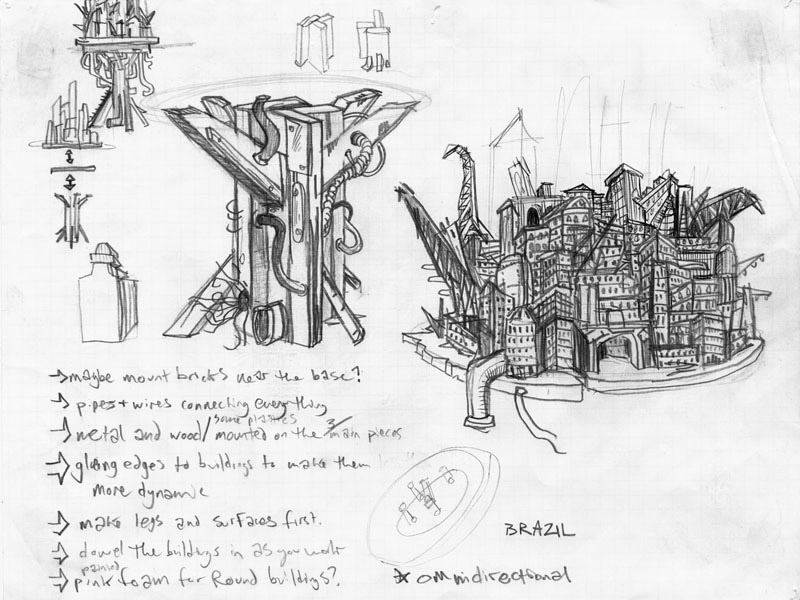 → maybe mount bricks near the base?
→ pipes + wires connecting everything
some plastics
→ metal and wood/mounted on the 3 main pieces
→ glueing edges to buildings to make them
more dynamic
→ make legs and surfaces first.
→ dowel the buildings in as you work
painted
→ pink foam for Round buildings?
BRAZIL
* omnidirectional